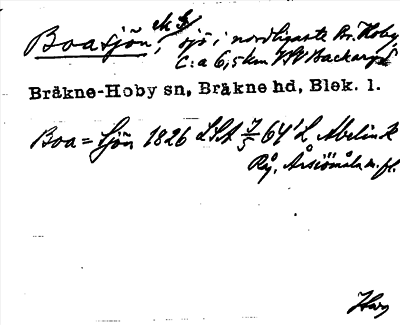 Boasjön, ek 5/ sjö i nordligaste Br. Hoby
C:a 6,5 km VSV Backaryd
Bråkne-Hoby sn, Bråkne hd, Blek. l.
Boa = Sjön 1826 LSA 7/5 64' L Abelin k
Rå, Årsiömåla m. fl.